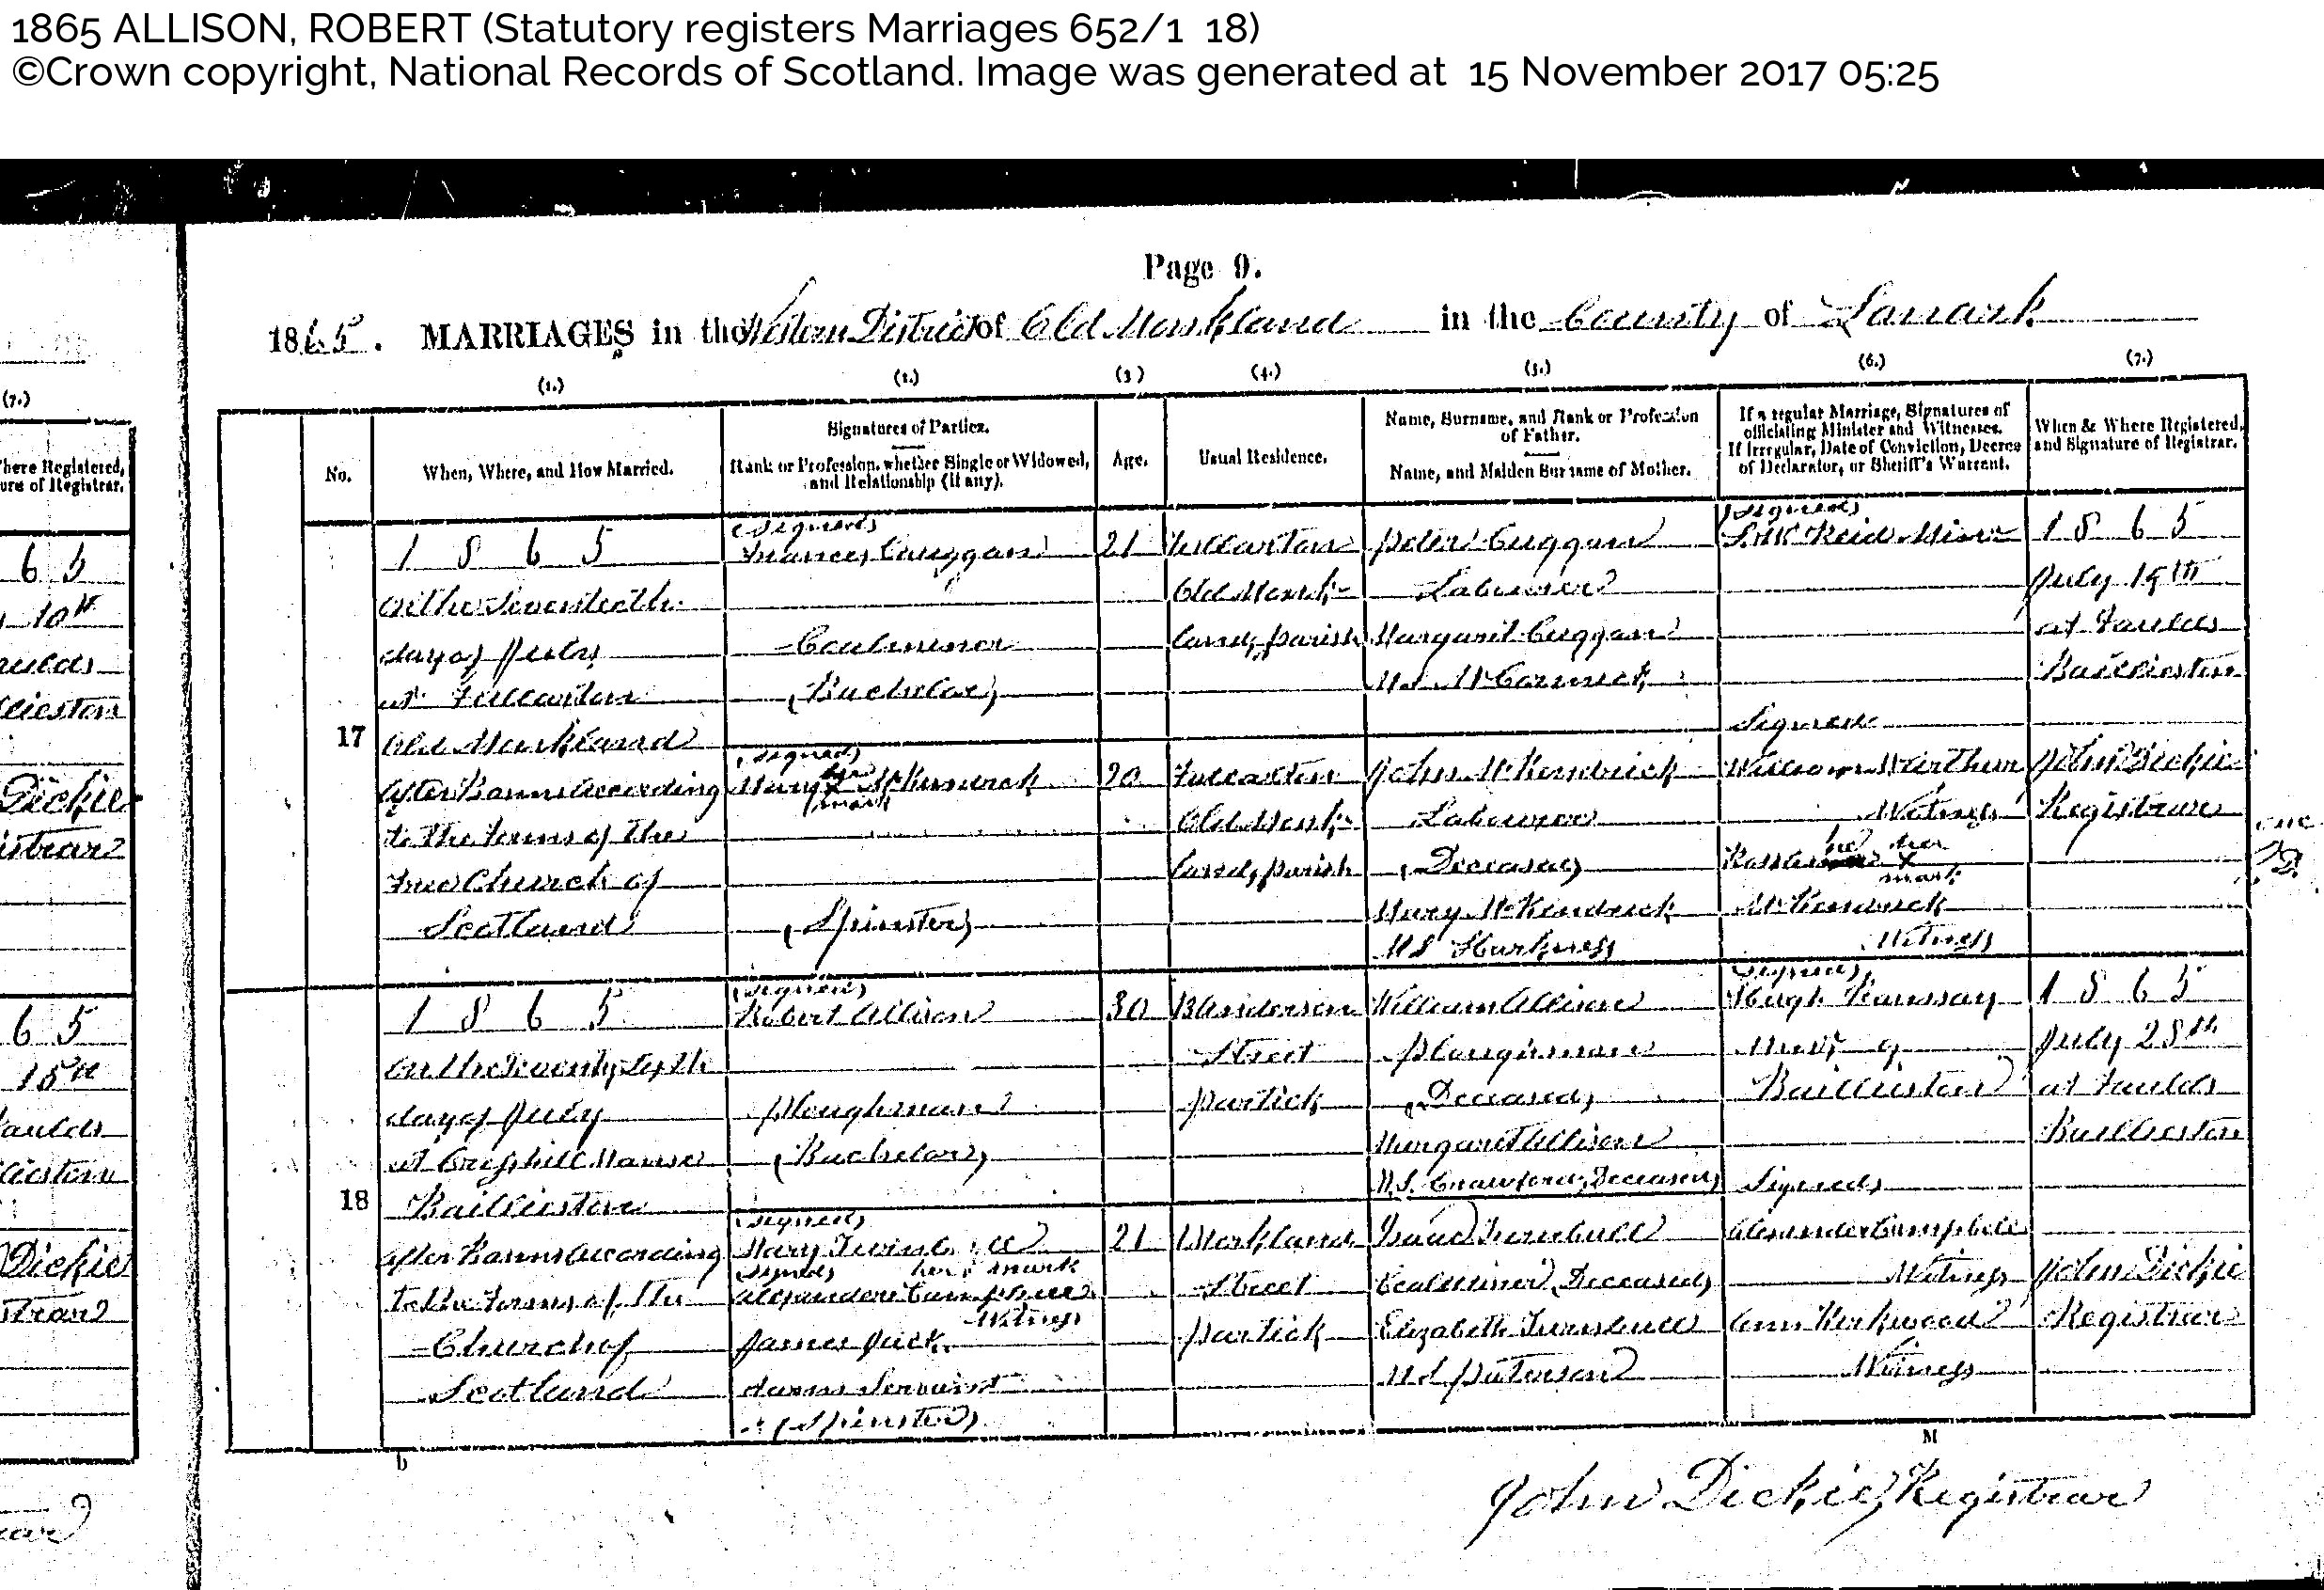 1865 ALLISON, ROBERT (Statutory registers Marriages 652/1 18)
©Crown copyright, National Records of Scotland. Image was generated at 15 November 2017 05:25
Page 9.
1865. MARRIAGES in the Western District of Old Monkland in the County of Lanark
(7.)
(1.) (2.) (3) (4.) (5.) (6.) (7.)
here Registered,
ure of Registrar.
No.
When, Where, and How Married.
Signatures of Parties.
Rank or Profession, whether Single or Widowed,
and Relationship (if any).
Age.
Usual Residence.
Name, Surname, and Rank or Profession
of Father.
Name, and Maiden Surname of Mother.
If a regular Marriage, Signatures of
officiating Minister and Witnesses.
If Irregular, Date of Conviction, Decree
of Declarator, or Sheriff's Warrant.
When & Where Registered,
and Signature of Registrar.
65
10th
aulds
lieston
Dickie
istrar
17
1865
on the Seventeenth
day of July
at Fullarton
Old Monkland
After Banns according
to the Forms of the
Free Church of
Scotland
(Signed)
Cuggan
Coalminer
(Bachelor)
(Signed)
Mary her x mark McKendrick
(Spinster)
21
20
Fullarton
Old Monk-
land, parish
Fullarton
Old Monk-
land, parish
Peter Cuggan
Labourer
Margaret Cuggan
M.S. McCormick
John McKendrick
Labourer
(Deceased)
Mary McKendrick
M.S. Harkness
(Signed)
Reid
Signed
William McArthur
Witness
her x mark
McKendrick
Witness
1865
July 19th
at Faulds
Baillieston
John Dickie
Registrar
65
15th
aulds
lieston
Dickie
strar
18
1865
On the Twenty sixth
day of July
at Crosshill Manse
Baillieston
After Banns according
to the Forms of the
Church of
Scotland
(Signed)
Robert Allison
Ploughman
(Bachelor)
(Signed)
Mary Turnbull
her x mark
(Signed)
Alexander Campbell
Witness
James Jack
Farm Servant
(Spinster)
30
21
Anderson
Street
Partick
Street
Partick
William Allison
Ploughman
(Deceased)
Margaret Allison
M.S. Crawford, (Deceased)
Isaac Turnbull
Coalminer, (Deceased)
Elizabeth Turnbull
M.S. Paterson
(Signed)
Hugh Ramsay
Minr. of
Baillieston
Signed
Alexander Campbell
Witness
Ann Kirkwood
Witness
1865
July 28th
at Faulds
Baillieston
John Dickie
Registrar
b
M
John Dickie, Registrar